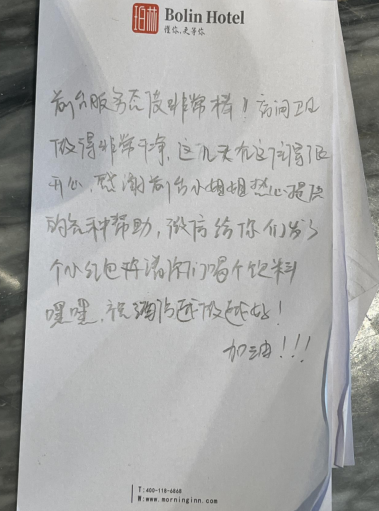 珀林 Bolin Hotel
懂你,更等你
前台服务态度非常棒!房间卫生
做得非常干净,这几天在这住得很
开心,感谢前台小姐姐热心提供
的各种帮助,微信给你们发了
个小红包 请你们喝个饮料
嘿嘿,祝酒店越做越好!
加油!!!
T:400-119-6868
W:www.morninginn.com